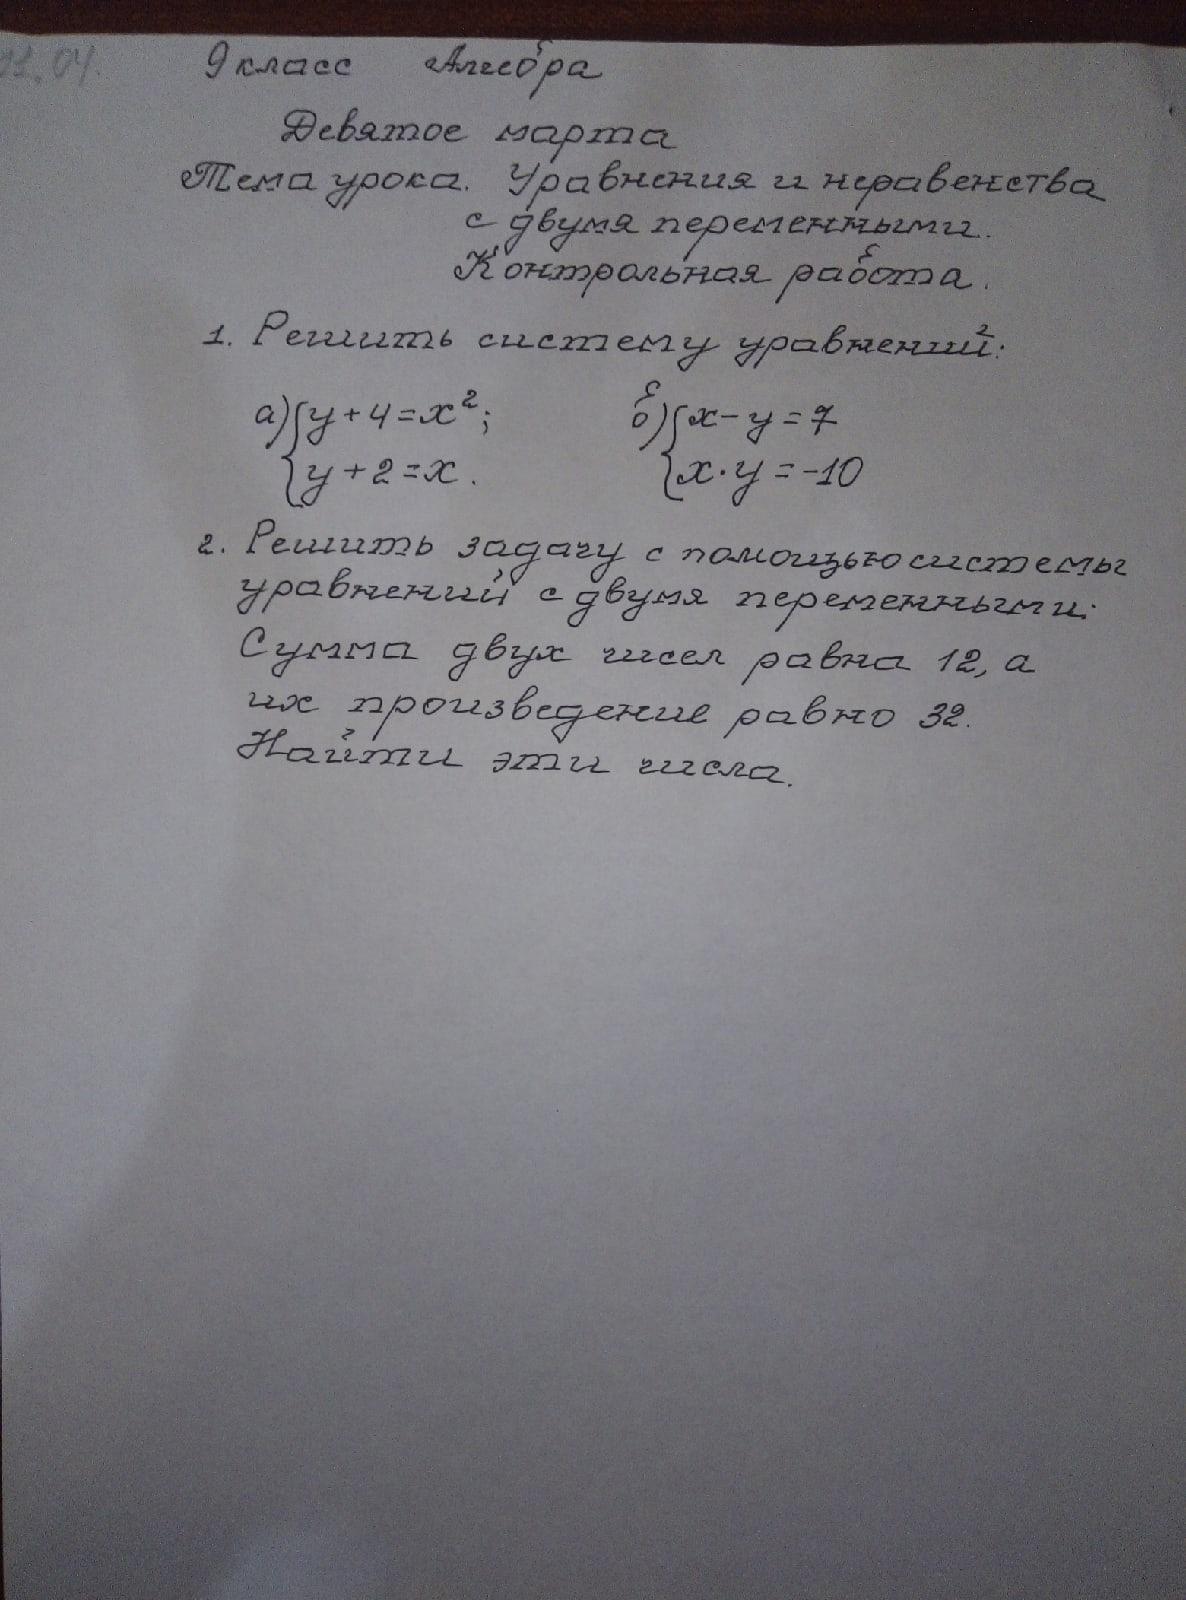 11.04.
9 класс Алгебра
Девятое марта
Тема урока. Уравнения и неравенства
с двумя переменными.
Контрольная работа.
1. Решить систему уравнений:
а) { y + 4 = x²; б) { x - y = 7
{ y + 2 = x. { x · y = -10
2. Решить задачу с помощью системы
уравнений с двумя переменными:
Сумма двух чисел равна 12, а
их произведение равно 32.
Найти эти числа.